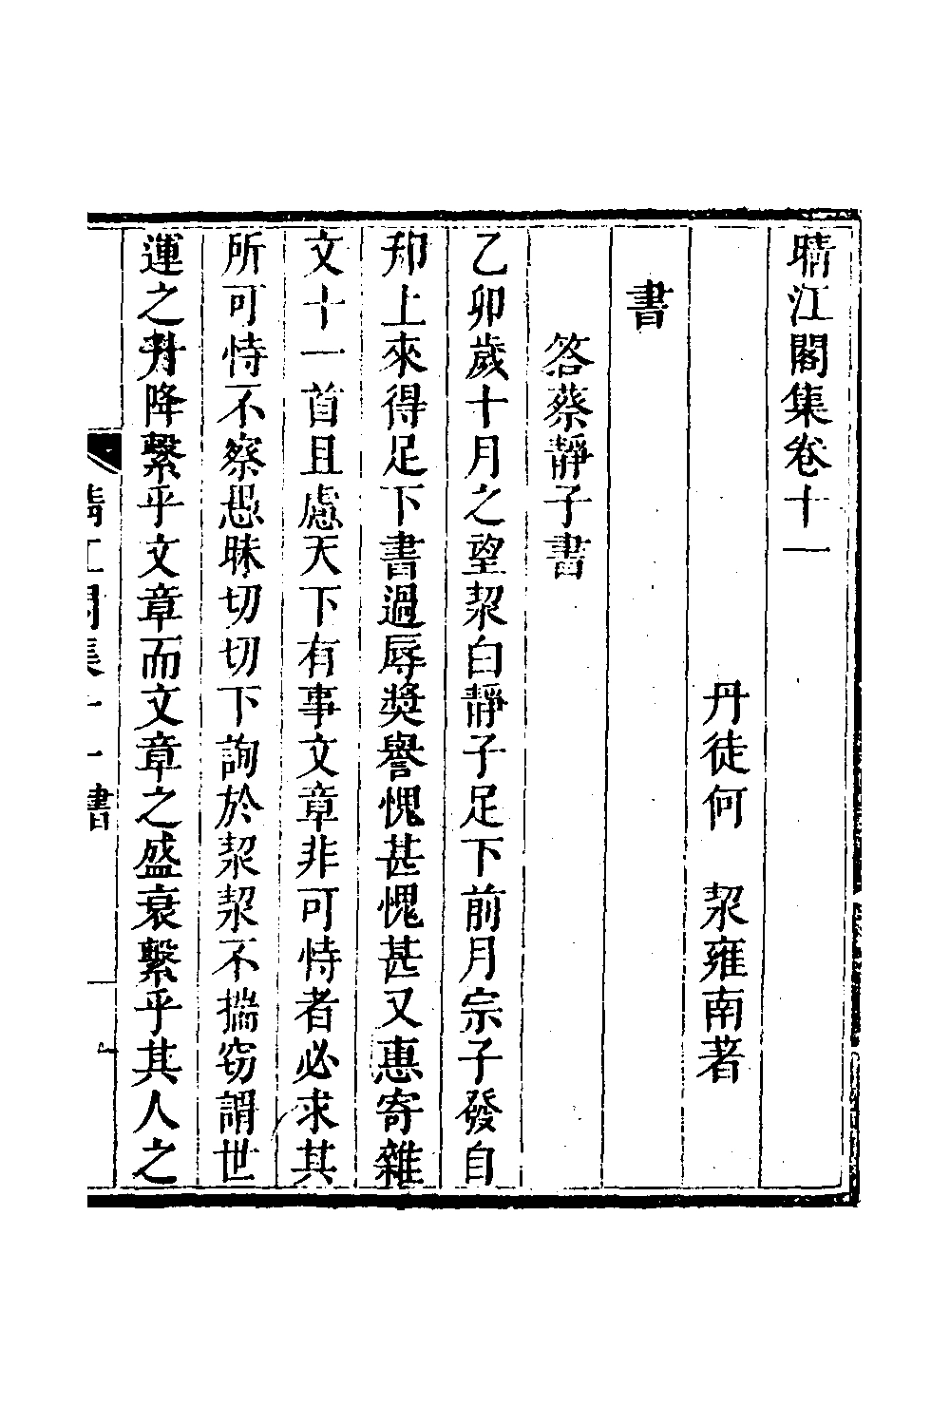 晴江閣集卷十一
丹徒何　洯雍南著
書
答蔡靜子書
乙卯歲十月之望洯白靜子足下前月宗子發自
邗上來得足下書過辱獎譽愧甚愧甚又惠寄雜
文十一首且慮天下有事文章非可恃者必求其
所可恃不察愚昧切切下詢於洯洯不揣窃謂世
運之升降繫乎文章而文章之盛衰繫乎其人之
晴江閣集十一書